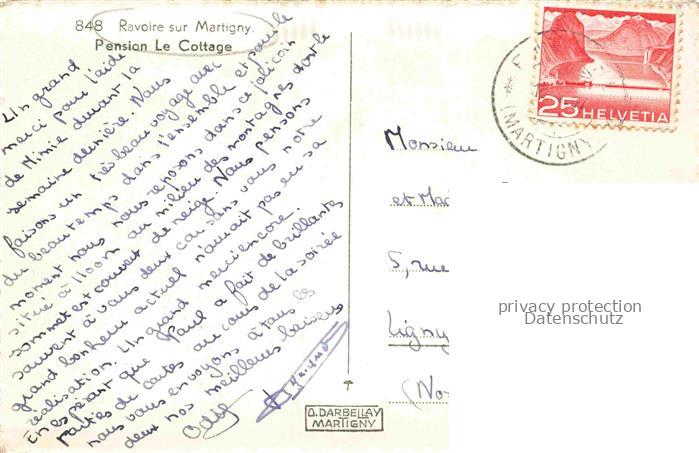 848 Ravoire sur Martigny.
Pension Le Cottage
Un grand
merci pour l'aide
de Mimie durant la
semaine dernière. Nous
faisons un très beau voyage avec
du beau temps dans l'ensemble et pour le
moment nous nous reposons dans ce joli coin
situé à 1100m au milieu des montagnes dont le
sommet est couvert de neige. Nous pensons
souvent à vous deux car sans vous notre
grand bonheur actuel n'aurait pas eu sa
réalisation. Un grand merci encore.
En espérant que Paul a fait de brillantes
parties de cartes au cours de la soirée
nous vous envoyons à tous les
deux nos meilleurs baisers
Monsieur
et Mad
5, rue
Ligny
(No
25 HELVETIA
(MARTIGNY
O. DARBELLAY
MARTIGNY
privacy protection
Datenschutz